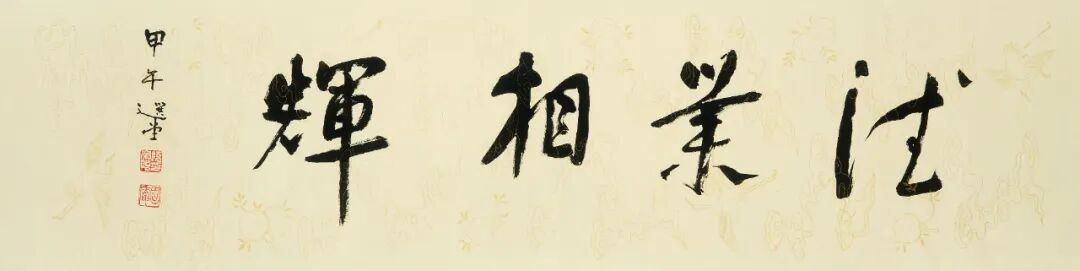 德業相輝
甲午選堂